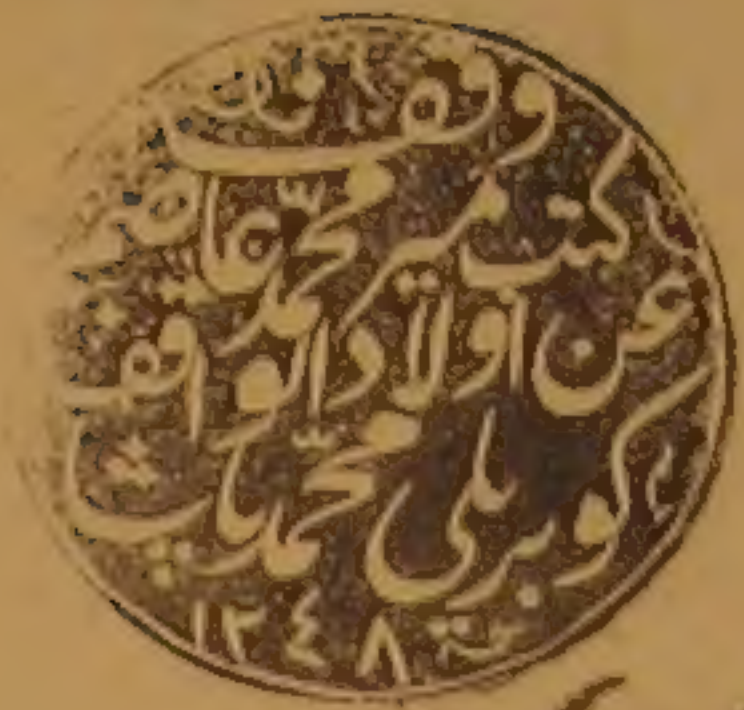 وقف
كتب مير محمد عاصم
عن أولاد الواقف
كوبريلى محمد پاشا
سنة ١٢٤٨